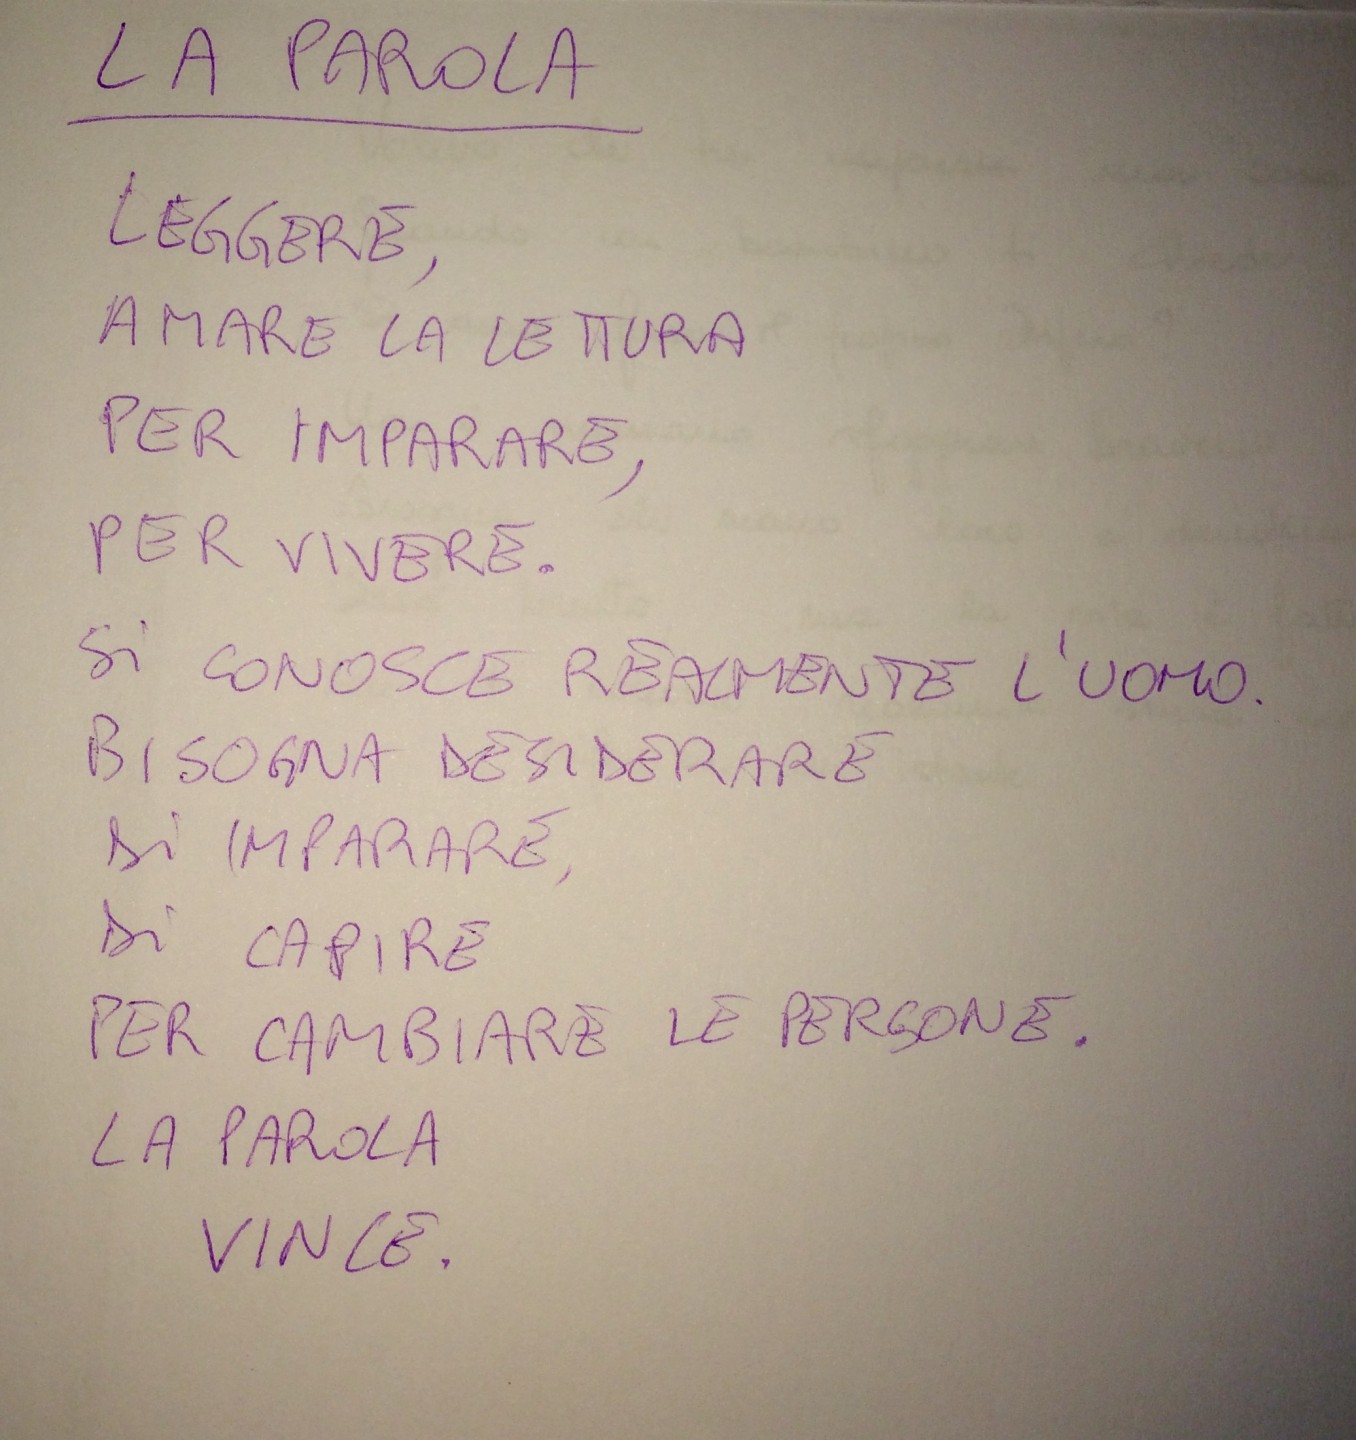 LA PAROLA
LEGGERE,
AMARE LA LETTURA
PER IMPARARE,
PER VIVERE.
Si CONOSCE REALMENTE L'UOMO.
BISOGNA DESIDERARE
Di IMPARARE,
Di CAPIRE
PER CAMBIARE LE PERSONE.
LA PAROLA
VINCE.